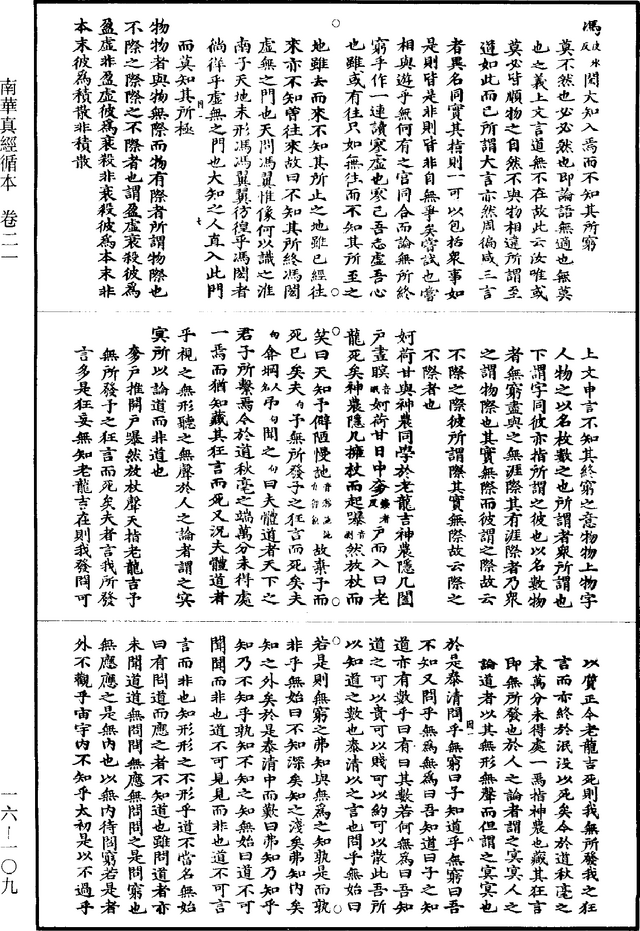 馮皮氷反閎大知入焉而不知其所窮
莫不然也必必然也即論語無適也無莫
也之義上文言道無不在故此云汝唯或
莫必皆順物之自然不與物相違所謂至
道如此而已所謂大言亦然周徧咸三言
者異名同實其指則一可以包括衆事如
是則皆是非則皆非自無爭矣嘗試也嘗
相與遊乎無何有之宮同合而論無所終
窮乎作一連讀寥虛也寥已吾志虛吾心
也雖或有往只如無往而不知其所至之
地雖去而來不知其所止之地雖已經往
來亦不知曾往來故曰不知其所終馮閎
虛無之門也天問馮翼惟像何以識之淮
南子天地未形馮馮翼翼彷徨乎馮閎者
徜徉乎虛無之門也大知之人直入此門
而莫知其所極
物物者與物無際而物有際者所謂物際也
不際之際際之不際者也謂盈虛衰殺彼為
盈虛非盈虛彼為衰殺非衰殺彼為本末非
本末彼為積散非積散
上文申言不知其終窮之意物物上物字
人物之以名枚數之也所謂者衆所謂也
下謂字同彼亦指所謂之彼也以名數物
者無窮盡與之無涯際其有涯際者乃衆
之謂物際也其實無際而彼謂之際故云
不際之際彼所謂際其實無際故云際之
不際者也
妸荷甘與神農同學於老龍吉神農隱几闔
戶晝瞑妸荷甘日中奓戶而入曰老
龍死矣神農隱几擁杖而起嚗然放杖而
笑曰天知予僻陋慢訑故棄予而
死已矣夫予無所發子之狂言而死矣夫
弇堈弔聞之曰夫體道者天下之
君子所繫焉今於道秋毫之端萬分未得處
一焉而猶知藏其狂言而死又況夫體道者
乎視之無形聽之無聲於人之論者謂之冥
冥所以論道而非道也
奓戶推開戶嚗然放杖聲天指老龍吉予
無所發予之狂言而死矣夫者言我所發
言多是狂妄無知老龍吉在則我發問可
以質正今老龍吉死則我無所發我之狂
言而亦終於泯没以死矣今於道秋毫之
末萬分未得處一焉指神農也藏其狂言
即無所發也於人之論者謂之冥冥人之
論道者以其無形無聲而但謂之冥冥也
於是泰清問乎無窮曰子知道乎無窮曰吾
不知又問乎無為無為曰吾知道曰子之知
道亦有數乎曰有曰其數若何無為曰吾知
道之可以貴可以賤可以約可以散此吾所
以知道之數也泰清以之言也問乎無始曰
若是則無窮之弗知與無為之知孰是而孰
非乎無始曰不知深矣知之淺矣弗知内矣
知之外矣於是泰清中而歎曰弗知乃知乎
知乃不知乎孰知不知之知無始曰道不可
聞聞而非也道不可見見而非也道不可言
言而非也知形形之不形乎道不當名無始
曰有問道而應之者不知道也雖問道者亦
未聞道道無問問無應無問問之是問窮也
無應應之是無内也以無内待問窮若是者
外不觀乎宙宇内不知乎太初是以不過乎
南華真經循本 卷二一
一六—一〇九